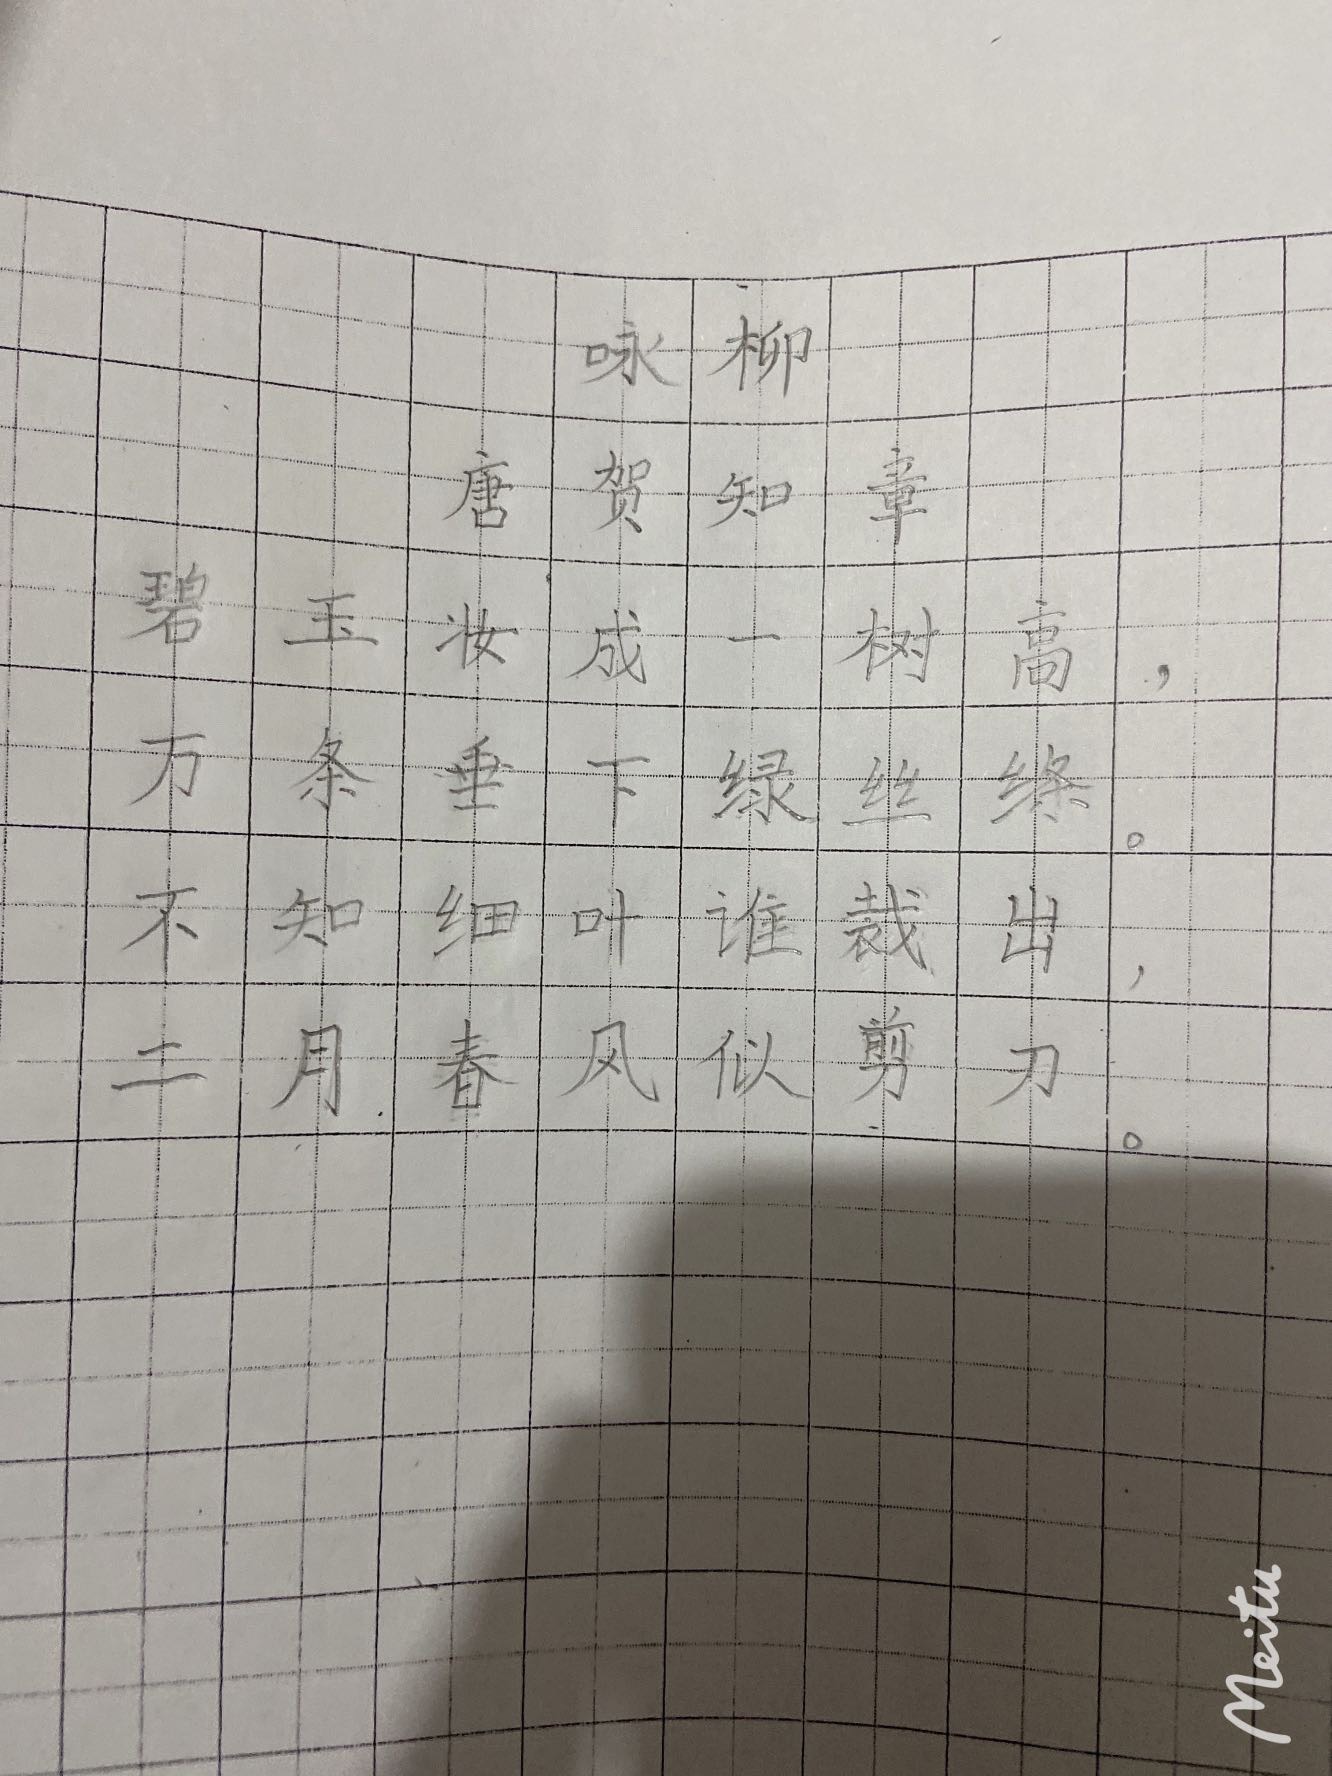 咏柳
唐贺知章
碧玉妆成一树高，
万条垂下绿丝绦。
不知细叶谁裁出，
二月春风似剪刀。
Meitu